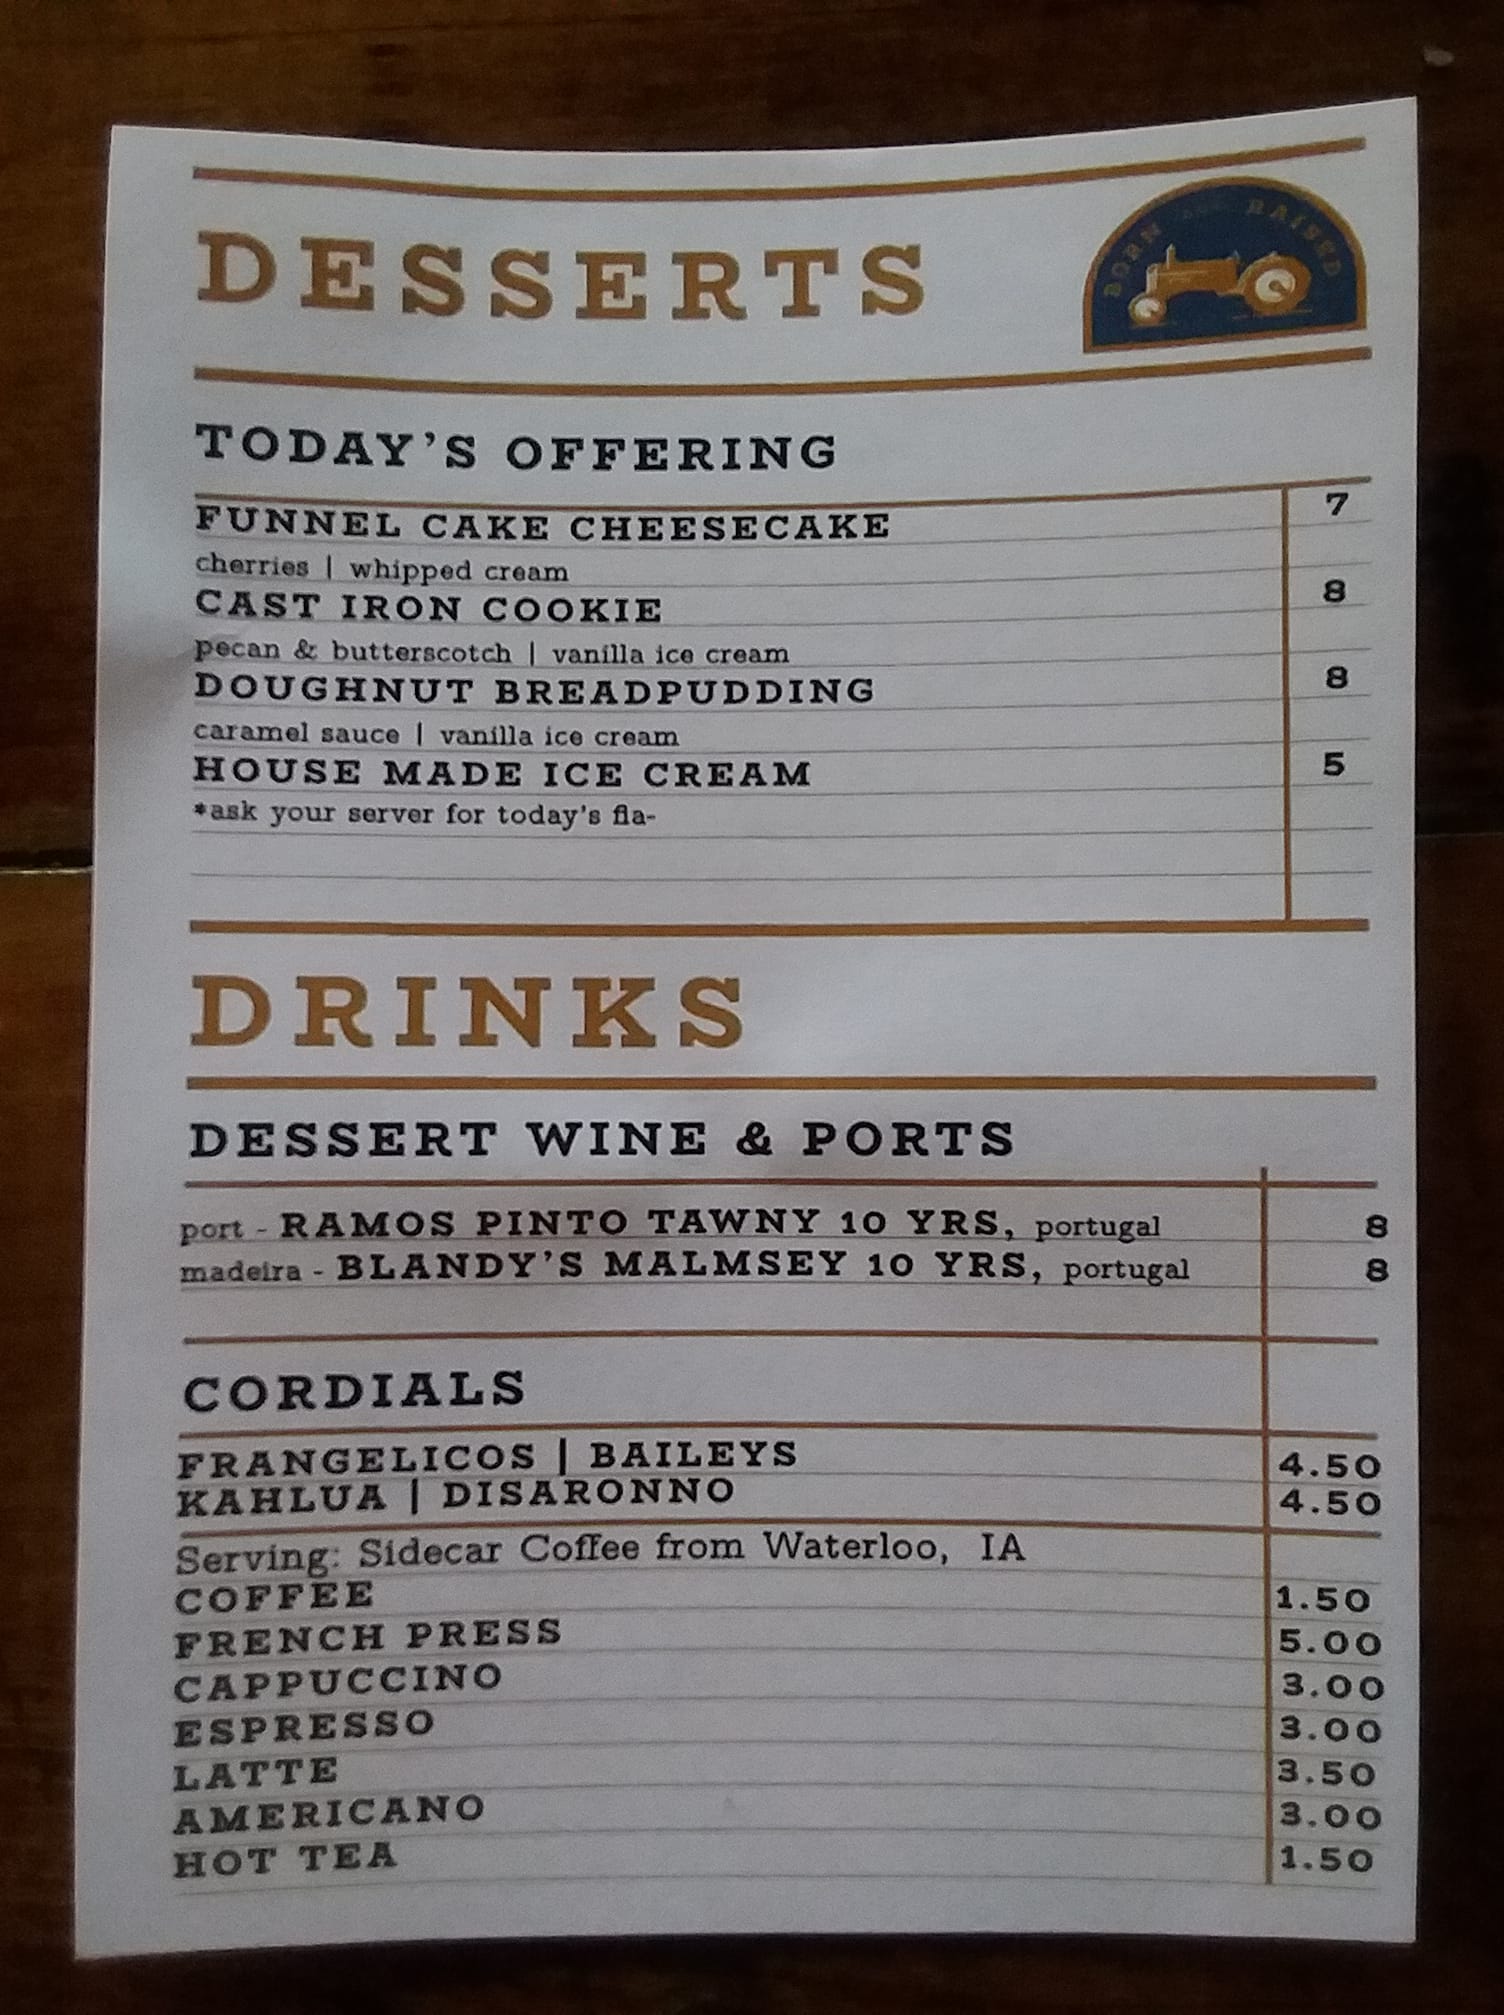 DESSERTS
BORN AND RAISED
TODAY'S OFFERING
FUNNEL CAKE CHEESECAKE 7
cherries | whipped cream
CAST IRON COOKIE 8
pecan & butterscotch | vanilla ice cream
DOUGHNUT BREADPUDDING 8
caramel sauce | vanilla ice cream
HOUSE MADE ICE CREAM 5
*ask your server for today's fla-
DRINKS
DESSERT WINE & PORTS
port - RAMOS PINTO TAWNY 10 YRS, portugal 8
madeira - BLANDY'S MALMSEY 10 YRS, portugal 8
CORDIALS
FRANGELICOS | BAILEYS 4.50
KAHLUA | DISARONNO 4.50
Serving: Sidecar Coffee from Waterloo, IA
COFFEE 1.50
FRENCH PRESS 5.00
CAPPUCCINO 3.00
ESPRESSO 3.00
LATTE 3.50
AMERICANO 3.00
HOT TEA 1.50